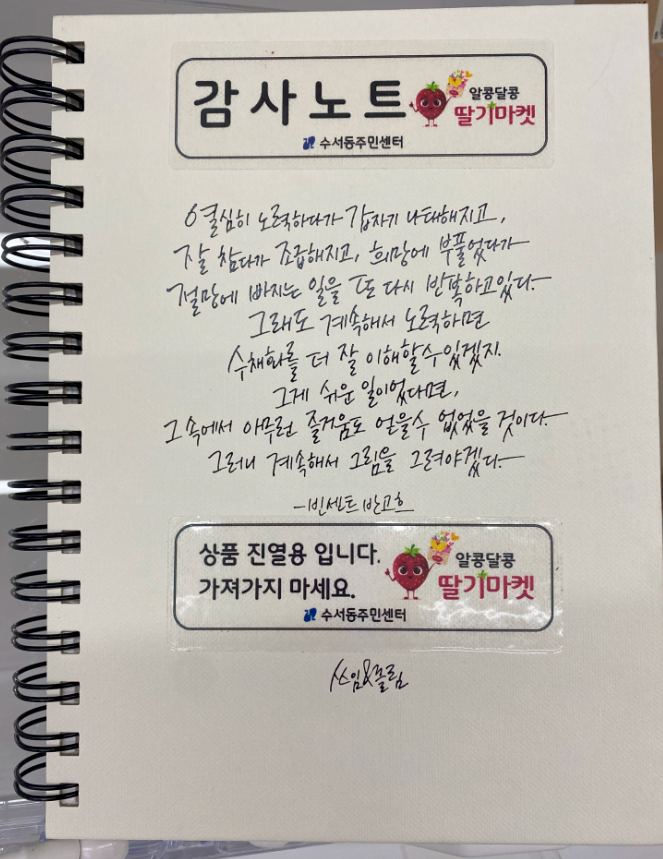 감사노트
알콩달콩
딸기마켓
수서동주민센터
열심히 노력하다가 갑자기 나태해지고,
잘 참다가 조급해지고, 희망에 부풀었다가
절망에 빠지는 일을 또 다시 반복하고있다.
그래도 계속해서 노력하면
수채화를 더 잘 이해할수있겠지.
그게 쉬운 일이었다면,
그 속에서 아무런 즐거움도 얻을수 없었을 것이다.
그러니 계속해서 그림을 그려야겠다.
-빈센트 반고흐
상품 진열용 입니다.
가져가지 마세요.
알콩달콩
딸기마켓
수서동주민센터
쓰임&